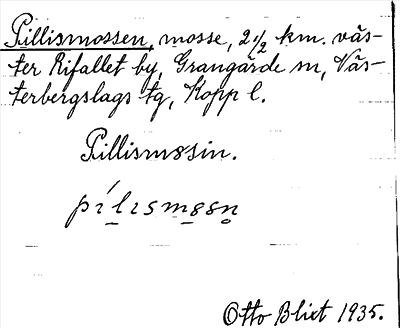 Pillismossen, mosse, 2 1/2 km. väs-
ter Rifallet by, Grangärde sn, Väs-
terbergslags tg, Kopp l.
Pillismosin.
pílısmosn̥
Otto Blixt 1935.